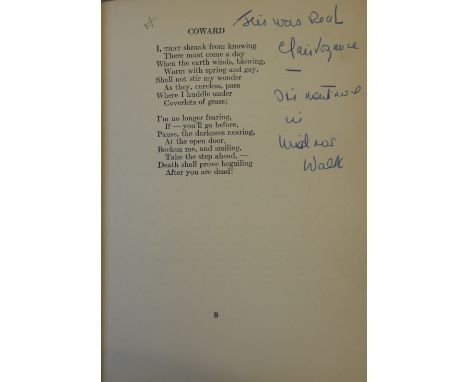 COWARD
I, THAT shrank from knowing
There must come a day
When the earth winds, blowing,
Warm with spring and gay,
Shall not stir my wonder
As they, careless, pass
Where I huddle under
Coverlets of grass;
I'm no longer fearing,
If — you'll go before,
Pause, the darkness nearing,
At the open door,
Beckon me, and smiling,
Take the step ahead, —
Death shall prove beguiling
After you are dead!
9
This was Real
Clairvoyance
—
in
Walk